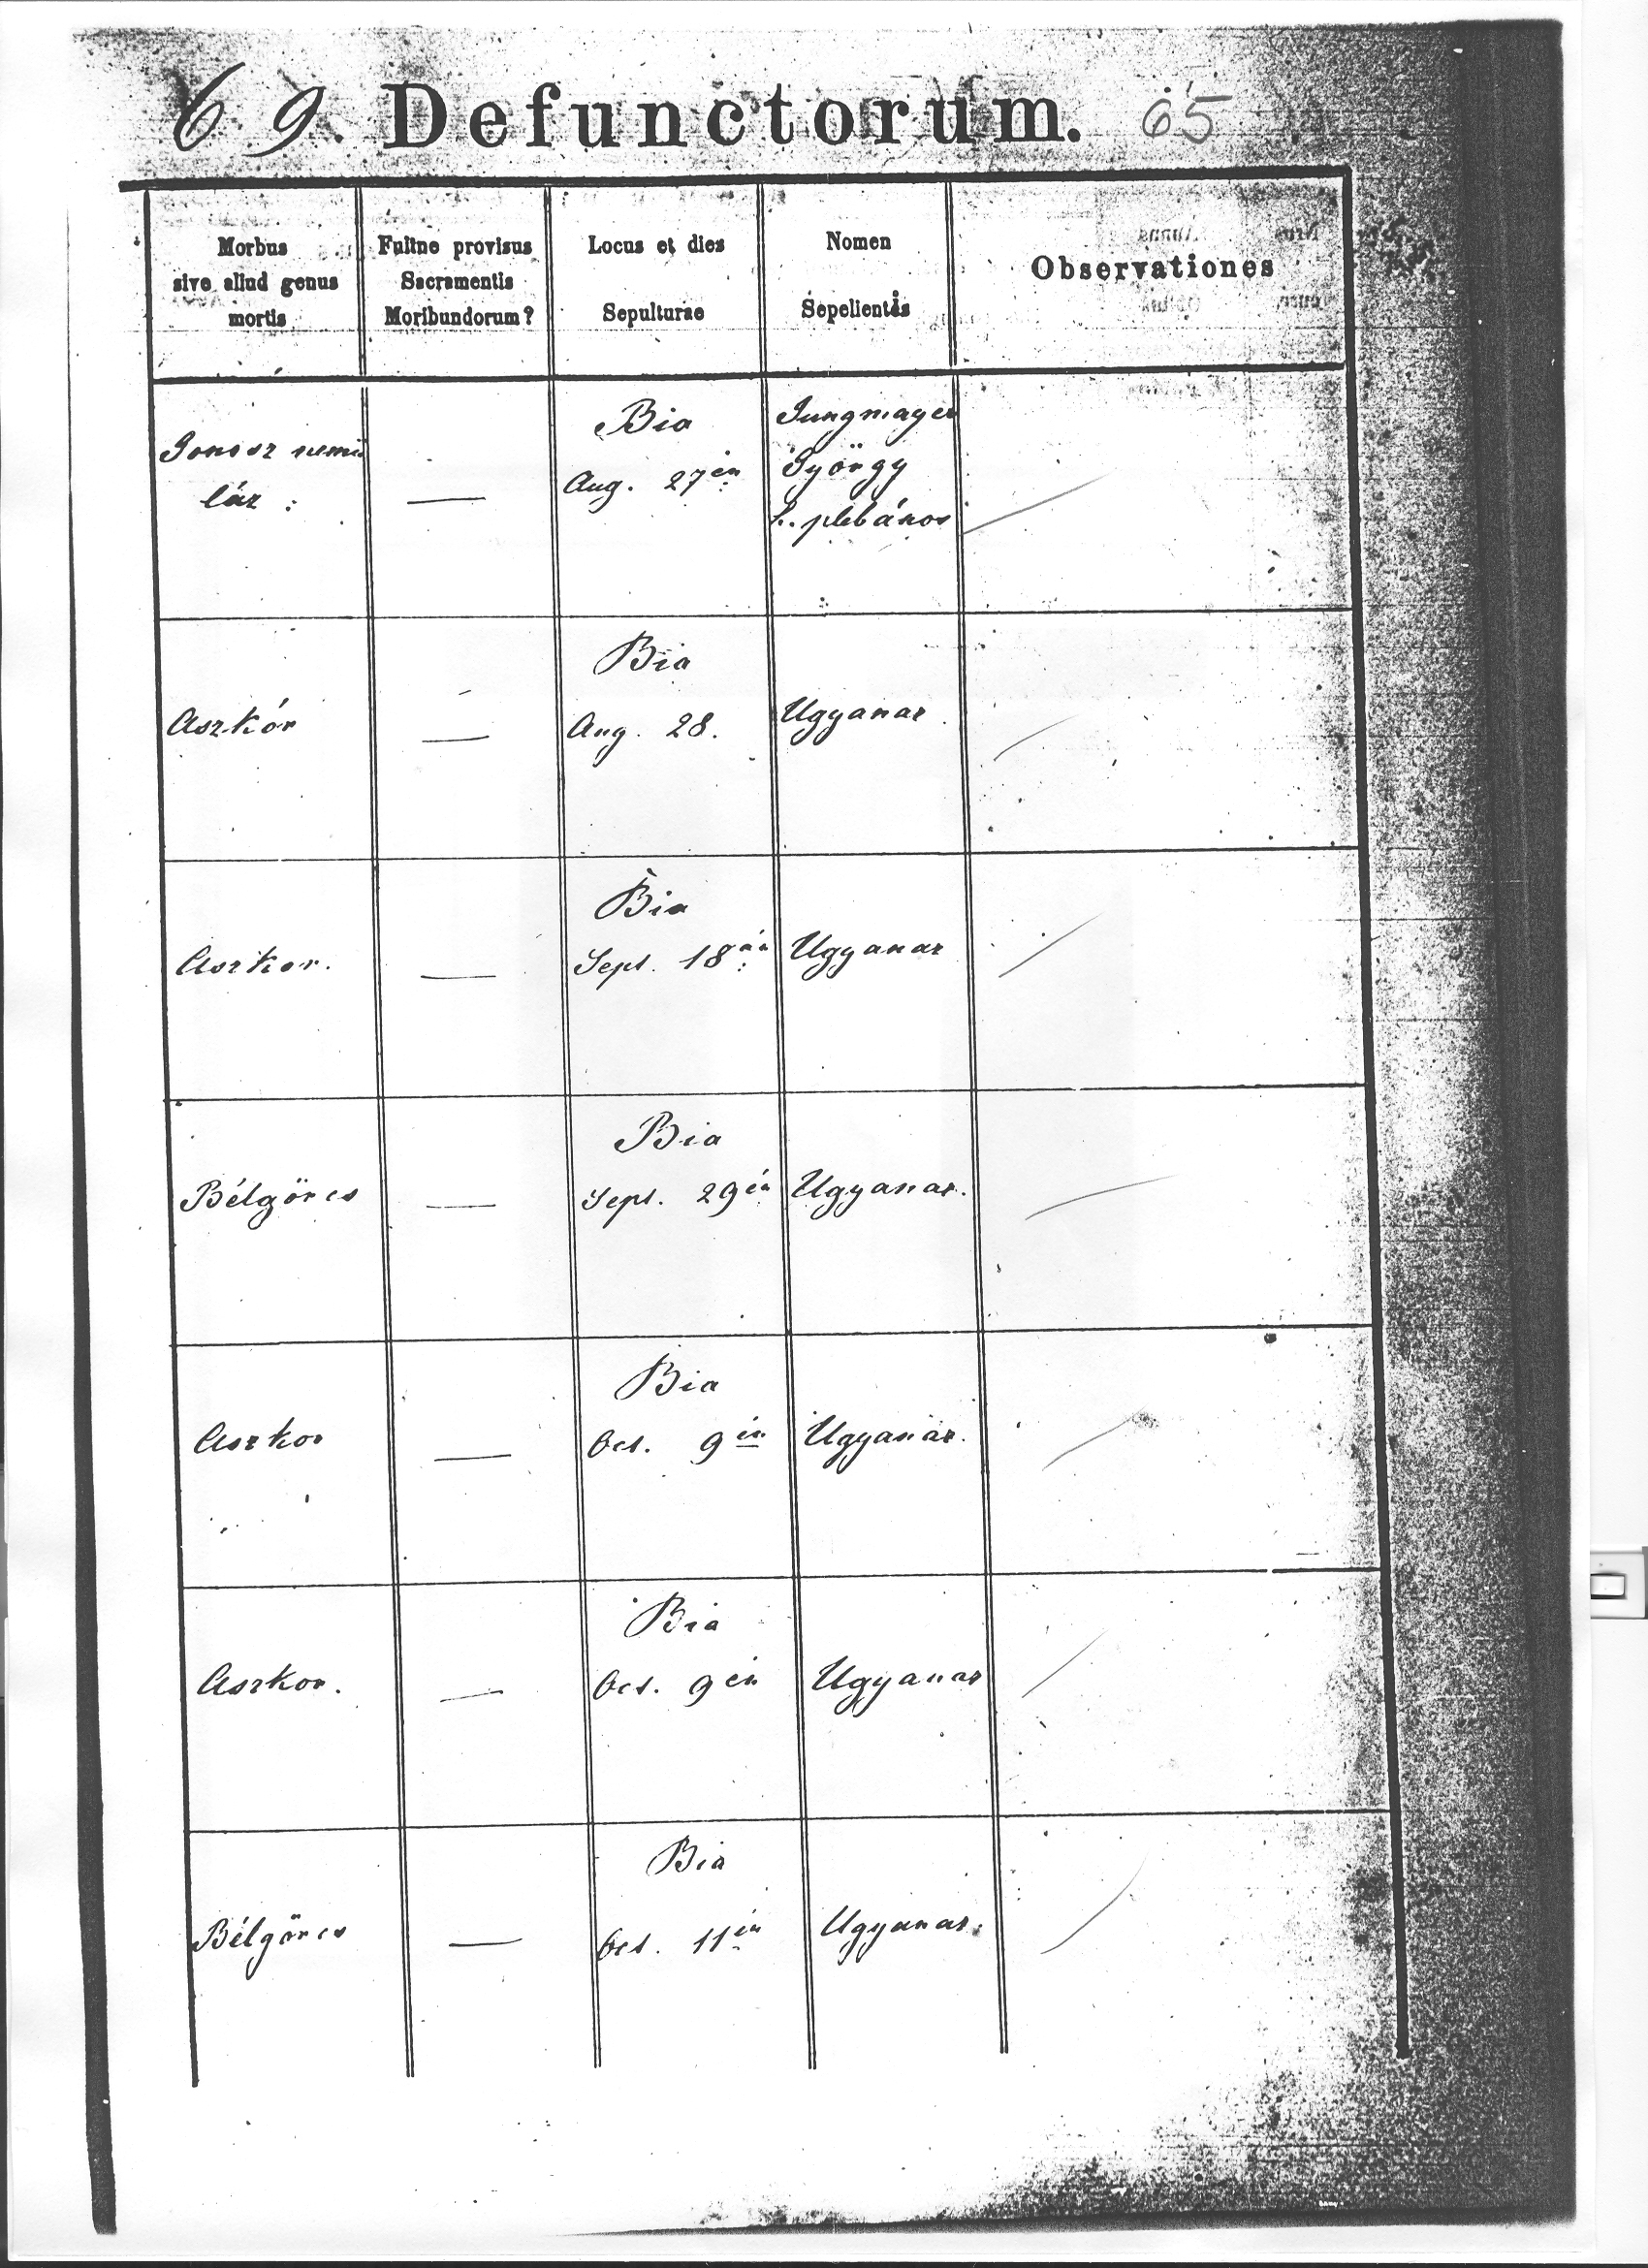 69. Defunctorum. 65
Morbus
sive aliud genus
mortis
Fuitne provisus
Sacramentis
Moribundorum?
Locus et dies
Sepulturae
Nomen
Sepelientis
Observationes
Gonosz nemű
láz :
—
Bia
Aug. 27én
Jungmayer
György
h. plébános
Aszkór
—
Bia
Aug. 28.
Ugyanaz
Aszkor.
—
Bia
Sept. 18án
Ugyanaz
Bélgörcs
—
Bia
Sept. 29én
Ugyanaz.
Aszkor
—
Bia
Oct. 9én
Ugyanaz.
Aszkor.
—
Bia
Oct. 9én
Ugyanaz
Bélgörcs
—
Bia
Oct. 11én
Ugyanaz.